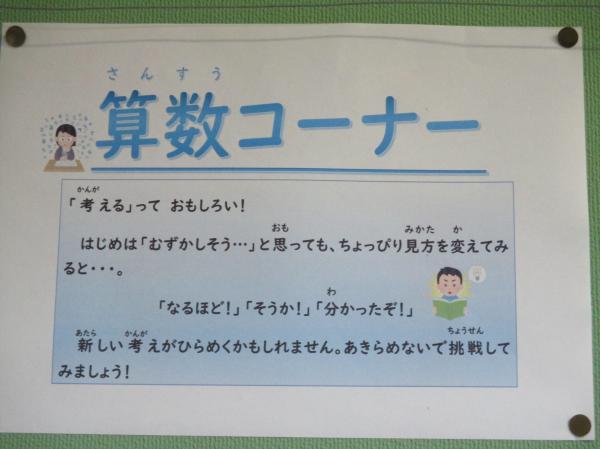 さんすう
算数コーナー
かんが
「考える」って おもしろい！
おも みかた か
はじめは「むずかしそう…」と思っても、ちょっぴり見方を変えてみ
ると・・・。
わ
「なるほど！」「そうか！」「分かったぞ！」
あたら かんが ちょうせん
新しい考えがひらめくかもしれません。あきらめないで挑戦して
みましょう！